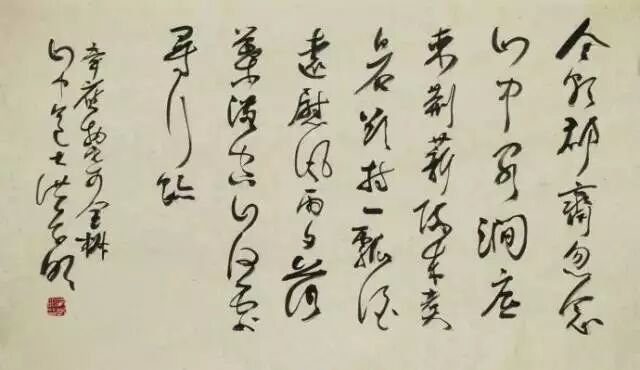 今朝郡齋忽念
山中客澗底
束荆薪歸來煮
白石欲持一瓢酒
遠慰風雨夕落
葉滿空山何處
尋行跡
韋應物寄全椒
山中道士洪